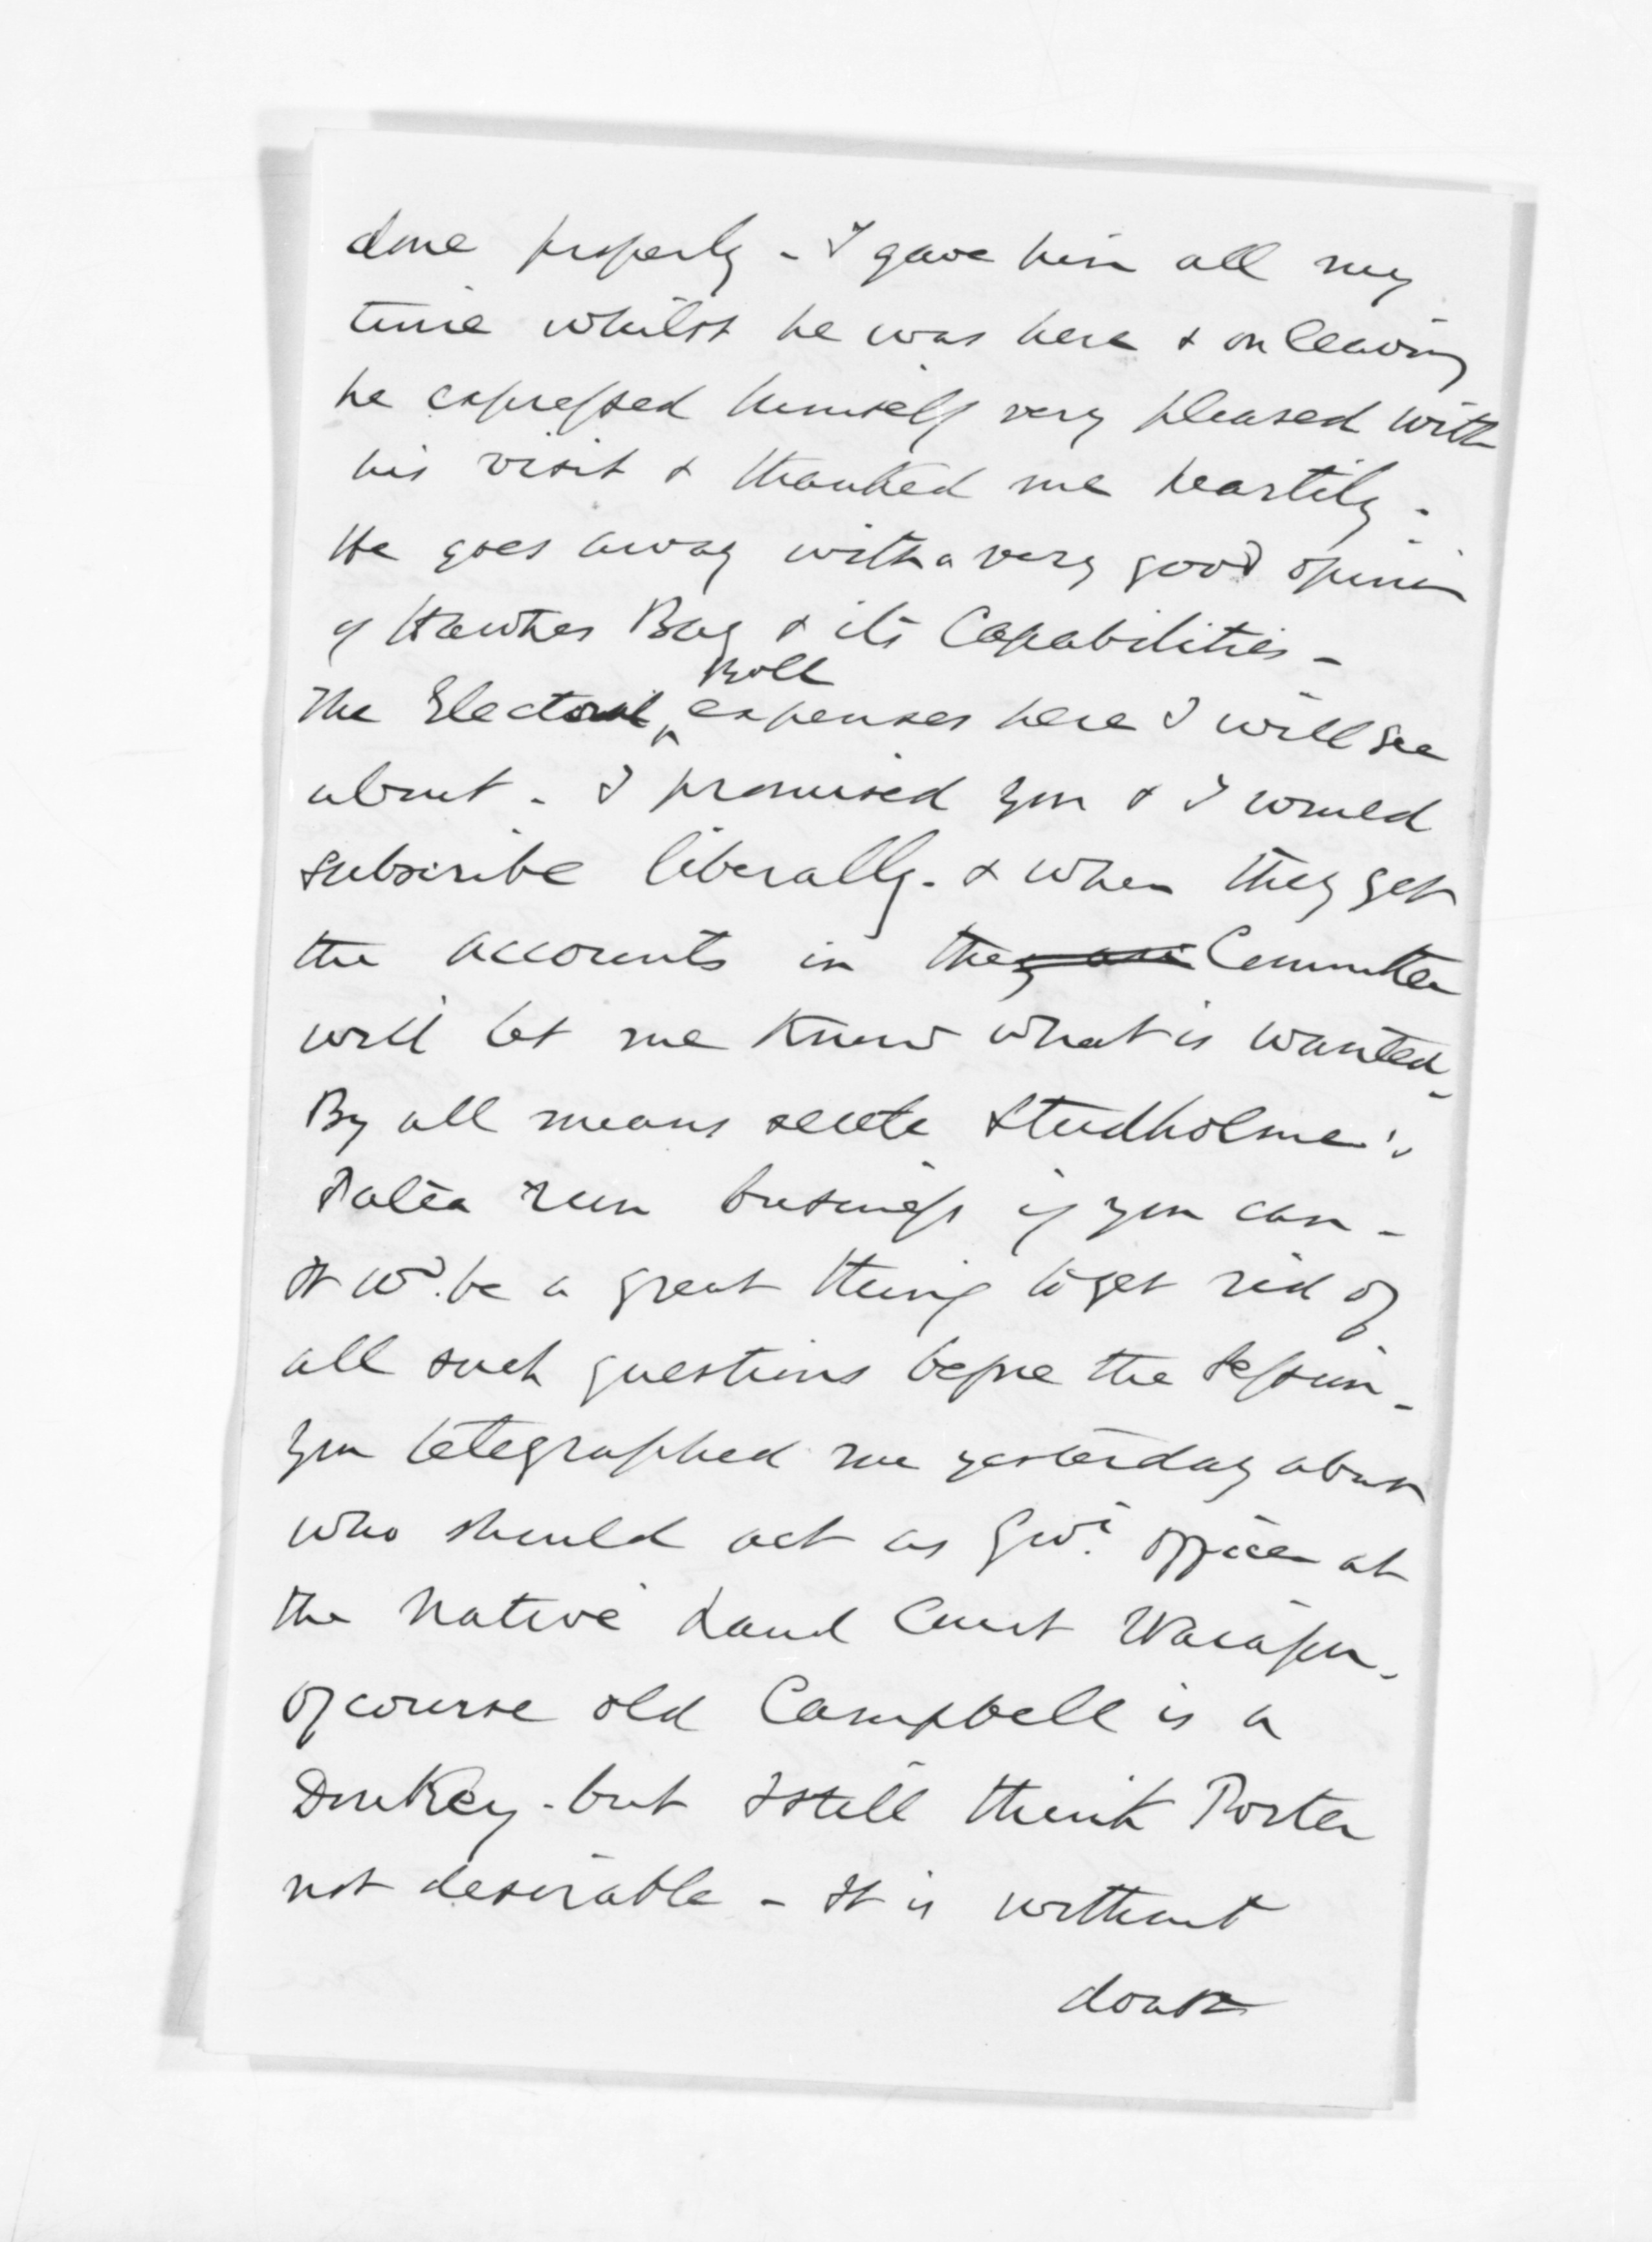 done properly - I gave him all my
time whilst he was here & on leaving
he expressed himself very pleased with
his visit & thanked me heartily.
He goes away with a very good opinion
of Hawkes Bay & its Capabilities -
Roll
The Electoral expenses here I will see
about - I promised you & I would
subscribe liberally - & when they get
the accounts in the Committee
will let me know what is wanted -
By all means settle Studholme's
Patea run business if you can -
It wd. be a great thing to get rid of
all such questions before the Session -
You telegraphed me yesterday about
who should act as Govt. officer at
the Native Land Court Waiapu -
Of course old Campbell is a
Donkey - but I still think Porter
not desirable - It is without
doubt